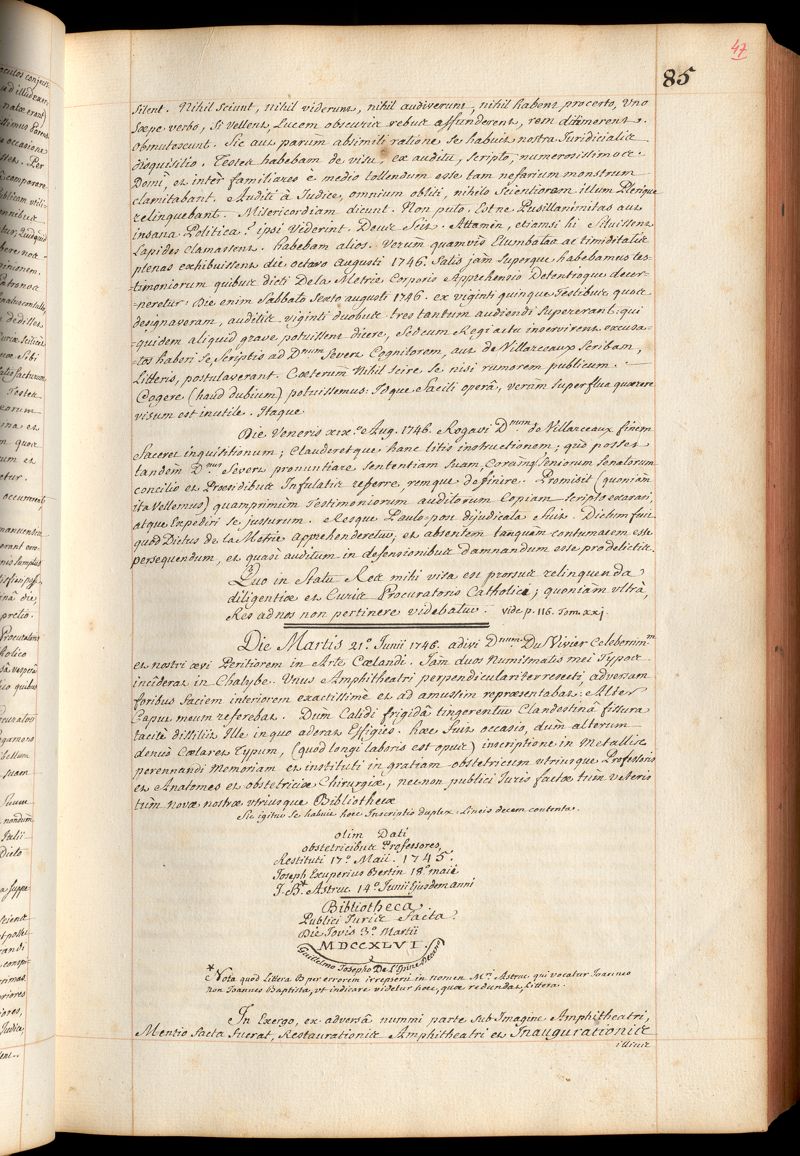 47
85
silent. Nihil sciunt, nihil viderunt, nihil audiverunt, nihil habent procerto, Uno
Sæpe verbo, Si vellent, Lucem obscuris rebus affunderent, rem dirimerent.
Obmutescunt. Sic aut parùm absimili ratione se habuit nostra Juridicialis
disquisitio. Testes habebam de visu, ex auditu, scripto, numerosissimos.
Domi, et inter familiares è medio tollendum esse tam nefarium monstrum
clamitabant. Auditi à Judice, omnium obliti, nihilo Scientiorem illum Plerique
relinquebant. Misericordiam dicunt. Non puto. Est ne Pusillanimitas aut
insana Politica? ipsi Viderint. Deus Scit. Attamen, etiamsi hi Siluissent
Lapides Clamassent. habebam alios. Verum quamvis Elumbatas ac timiditatis
plenas exhibuissent die octavo augusti 1746. Satis jam superque habebamus tes-
timoniorum quibus dicti De la Metrie Corporis Apprehensio Detentioque decer-
=neretur: Die enim Sabbato Sexto augusti 1746. ex viginti quinque Testibus quos
designaveram, auditis viginti duobus tres tantum audiendi supererant: qui
quidem aliquid grave potuissent dicere, Sed cum Regi actu inservirent excusa-
tos haberi se scriptis ad Dnum Severt Cognitorem, aut de Villarceaux Scribam,
Litteris, postulaverant. Cæterum Nihil scire se nisi rumorem publicum.
Cogere (haud dubium) potuissemus: Idque facili operâ, verùm superflua quærere
visum est inutile. Itaque
Die Veneris xix.o Aug. 1746. Rogavi Dnum de Villarceaux finem
faceret inquisitionum; Clauderetque hanc litis instructionem; quò posset
tandem Dnus Severt pronuntiare sententiam suam, Coram Seniorum Senatorum
concilio et Præsidibus Infulatis referre, remque definire. Promisit (quoniam
ita vellemus) quamprimùm Testimoniorum auditorum Copiam scripto excarari,
atque Expediri se jussurum. Resque Paulo-pòn dijudicata fuit. Dictum fuit
quòd Dictus de la Metrie apprehenderetur, et absentem tanquàm contumacem esse
persequendum, et quasi auditum in defensionibus damnandum esse pro delictis.
(3)
Quo in Statu Res mihi visa est prorsus relinquenda
diligentiæ et Curis Procuratoris Catholici; quoniam ultrà,
Res ad nos non pertinere videbatur. vide p. 116. Tom. xxj
Die Martis 21.o Junii 1746. adivi Dnum Du Vivier Celeberrim.m
et nostri ævi Peritiorem in Arte Cælandi. Jam duos Numismatis mei Typos
inciderat in Chalybe. Unus Amphitheatri perpendiculariter resecti, adversam
foribus faciem interiorem exactissimè et ad amussim repræsentabat: Alter
Caput meum referebat. Dum Calidi frigidâ tingerentur Clandestinâ fissura
tacitè dissiliit Ille in quo aderat Effigies. hæc fuit occasio, dum alterum
denuò Cælaret Typum, (quod longi laboris est opus) inscriptione in Metallis
perennandi Memoriam et instituti in gratiam obstetricum utriusque Professoris
et Anatomes et obstetriciæ Chirurgiæ, nec non publici Juris factæ tum veteris
tum novæ nostræ utriusque Bibliothecæ
Sic igitur se habuit hæc Inscriptio duplex. Lineis decem contenta.
olim Dati
obstetricibus Professores,
Restituti 17.o Maii. 1745.
Joseph Exuperius Bertin 18.o maii
J. B.* Astruc 14.o Junii Ejusdem anni
Bibliotheca
Publici Juris Facta
Die Jovis 3.o Martii
MDCCXLVI.
Guillelmo Josepho De L'Epine Decano
* Nota quòd Littera B per errorem irrepserit in nomen M.ri Astruc qui vocatur Joannes
non Joannes Baptista, ut indicare videtur hæc, quæ redundat, Littera.
In Exergo, ex adversâ nummi parte sub Imagine Amphitheatri,
Mentio facta fuerat, Restaurationis Amphitheatri et Inaugurationis
illius